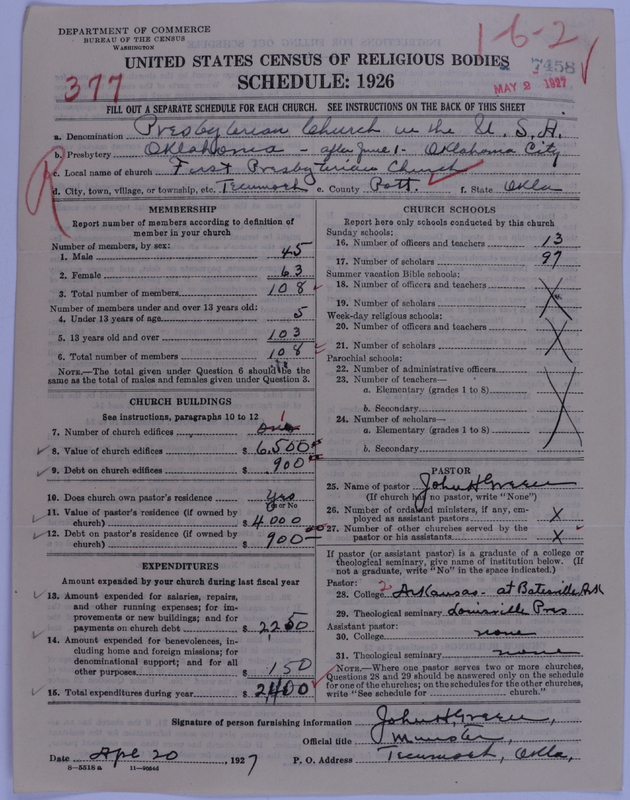 DEPARTMENT OF COMMERCE
BUREAU OF THE CENSUS
WASHINGTON
1-6-2
7458
MAY 2 1927
UNITED STATES CENSUS OF RELIGIOUS BODIES
SCHEDULE: 1926
377
FILL OUT A SEPARATE SCHEDULE FOR EACH CHURCH. SEE INSTRUCTIONS ON THE BACK OF THIS SHEET
R
a. Denomination Presbyterian Church in the U. S. A.
b. Presbytery Oklahoma - after June 1 - Oklahoma City
c. Local name of church First Presbyterian Church
d. City, town, village, or township, etc. Tecumseh e. County Pott. f. State Okla
MEMBERSHIP
Report number of members according to definition of
member in your church
Number of members, by sex:
1. Male 45
2. Female 63
3. Total number of members 108
Number of members under and over 13 years old:
4. Under 13 years of age 5
5. 13 years old and over 103
6. Total number of members 108
NOTE.—The total given under Question 6 should be the
same as the total of males and females given under Question 3.
CHURCH BUILDINGS
See instructions, paragraphs 10 to 12
7. Number of church edifices one 1
8. Value of church edifices $ 6,500
9. Debt on church edifices $ 900
10. Does church own pastor's residence Yes
Yes or No
11. Value of pastor's residence (if owned by
church) $ 4000
12. Debt on pastor's residence (if owned by
church) $ 900
EXPENDITURES
Amount expended by your church during last fiscal year
13. Amount expended for salaries, repairs,
and other running expenses; for im-
provements or new buildings; and for
payments on church debt $ 2250
14. Amount expended for benevolences, in-
cluding home and foreign missions; for
denominational support; and for all
other purposes $ 150
15. Total expenditures during year $ 2400
CHURCH SCHOOLS
Report here only schools conducted by this church
Sunday schools:
16. Number of officers and teachers 13
17. Number of scholars 97
Summer vacation Bible schools:
18. Number of officers and teachers
19. Number of scholars
Week-day religious schools:
20. Number of officers and teachers
21. Number of scholars
Parochial schools:
22. Number of administrative officers
23. Number of teachers—
a. Elementary (grades 1 to 8)
b. Secondary
24. Number of scholars—
a. Elementary (grades 1 to 8)
b. Secondary
PASTOR
25. Name of pastor John H Green
(If church has no pastor, write "None")
26. Number of ordained ministers, if any, em-
ployed as assistant pastors X
27. Number of other churches served by the
pastor or his assistants X
If pastor (or assistant pastor) is a graduate of a college or
theological seminary, give name of institution below. (If
not a graduate, write "No" in the space indicated.)
Pastor:
28. College 2 Arkansas - at Batesville, Ark
29. Theological seminary Louisville Pres
Assistant pastor:
30. College none
31. Theological seminary none
NOTE.—Where one pastor serves two or more churches,
Questions 28 and 29 should be answered only on the schedule
for one of the churches; on the schedules for the other churches,
write "See schedule for church."
Signature of person furnishing information John H Green,
Official title Minister,
Date Apl 20, 1927 P. O. Address Tecumseh, Okla,
8-5518 a